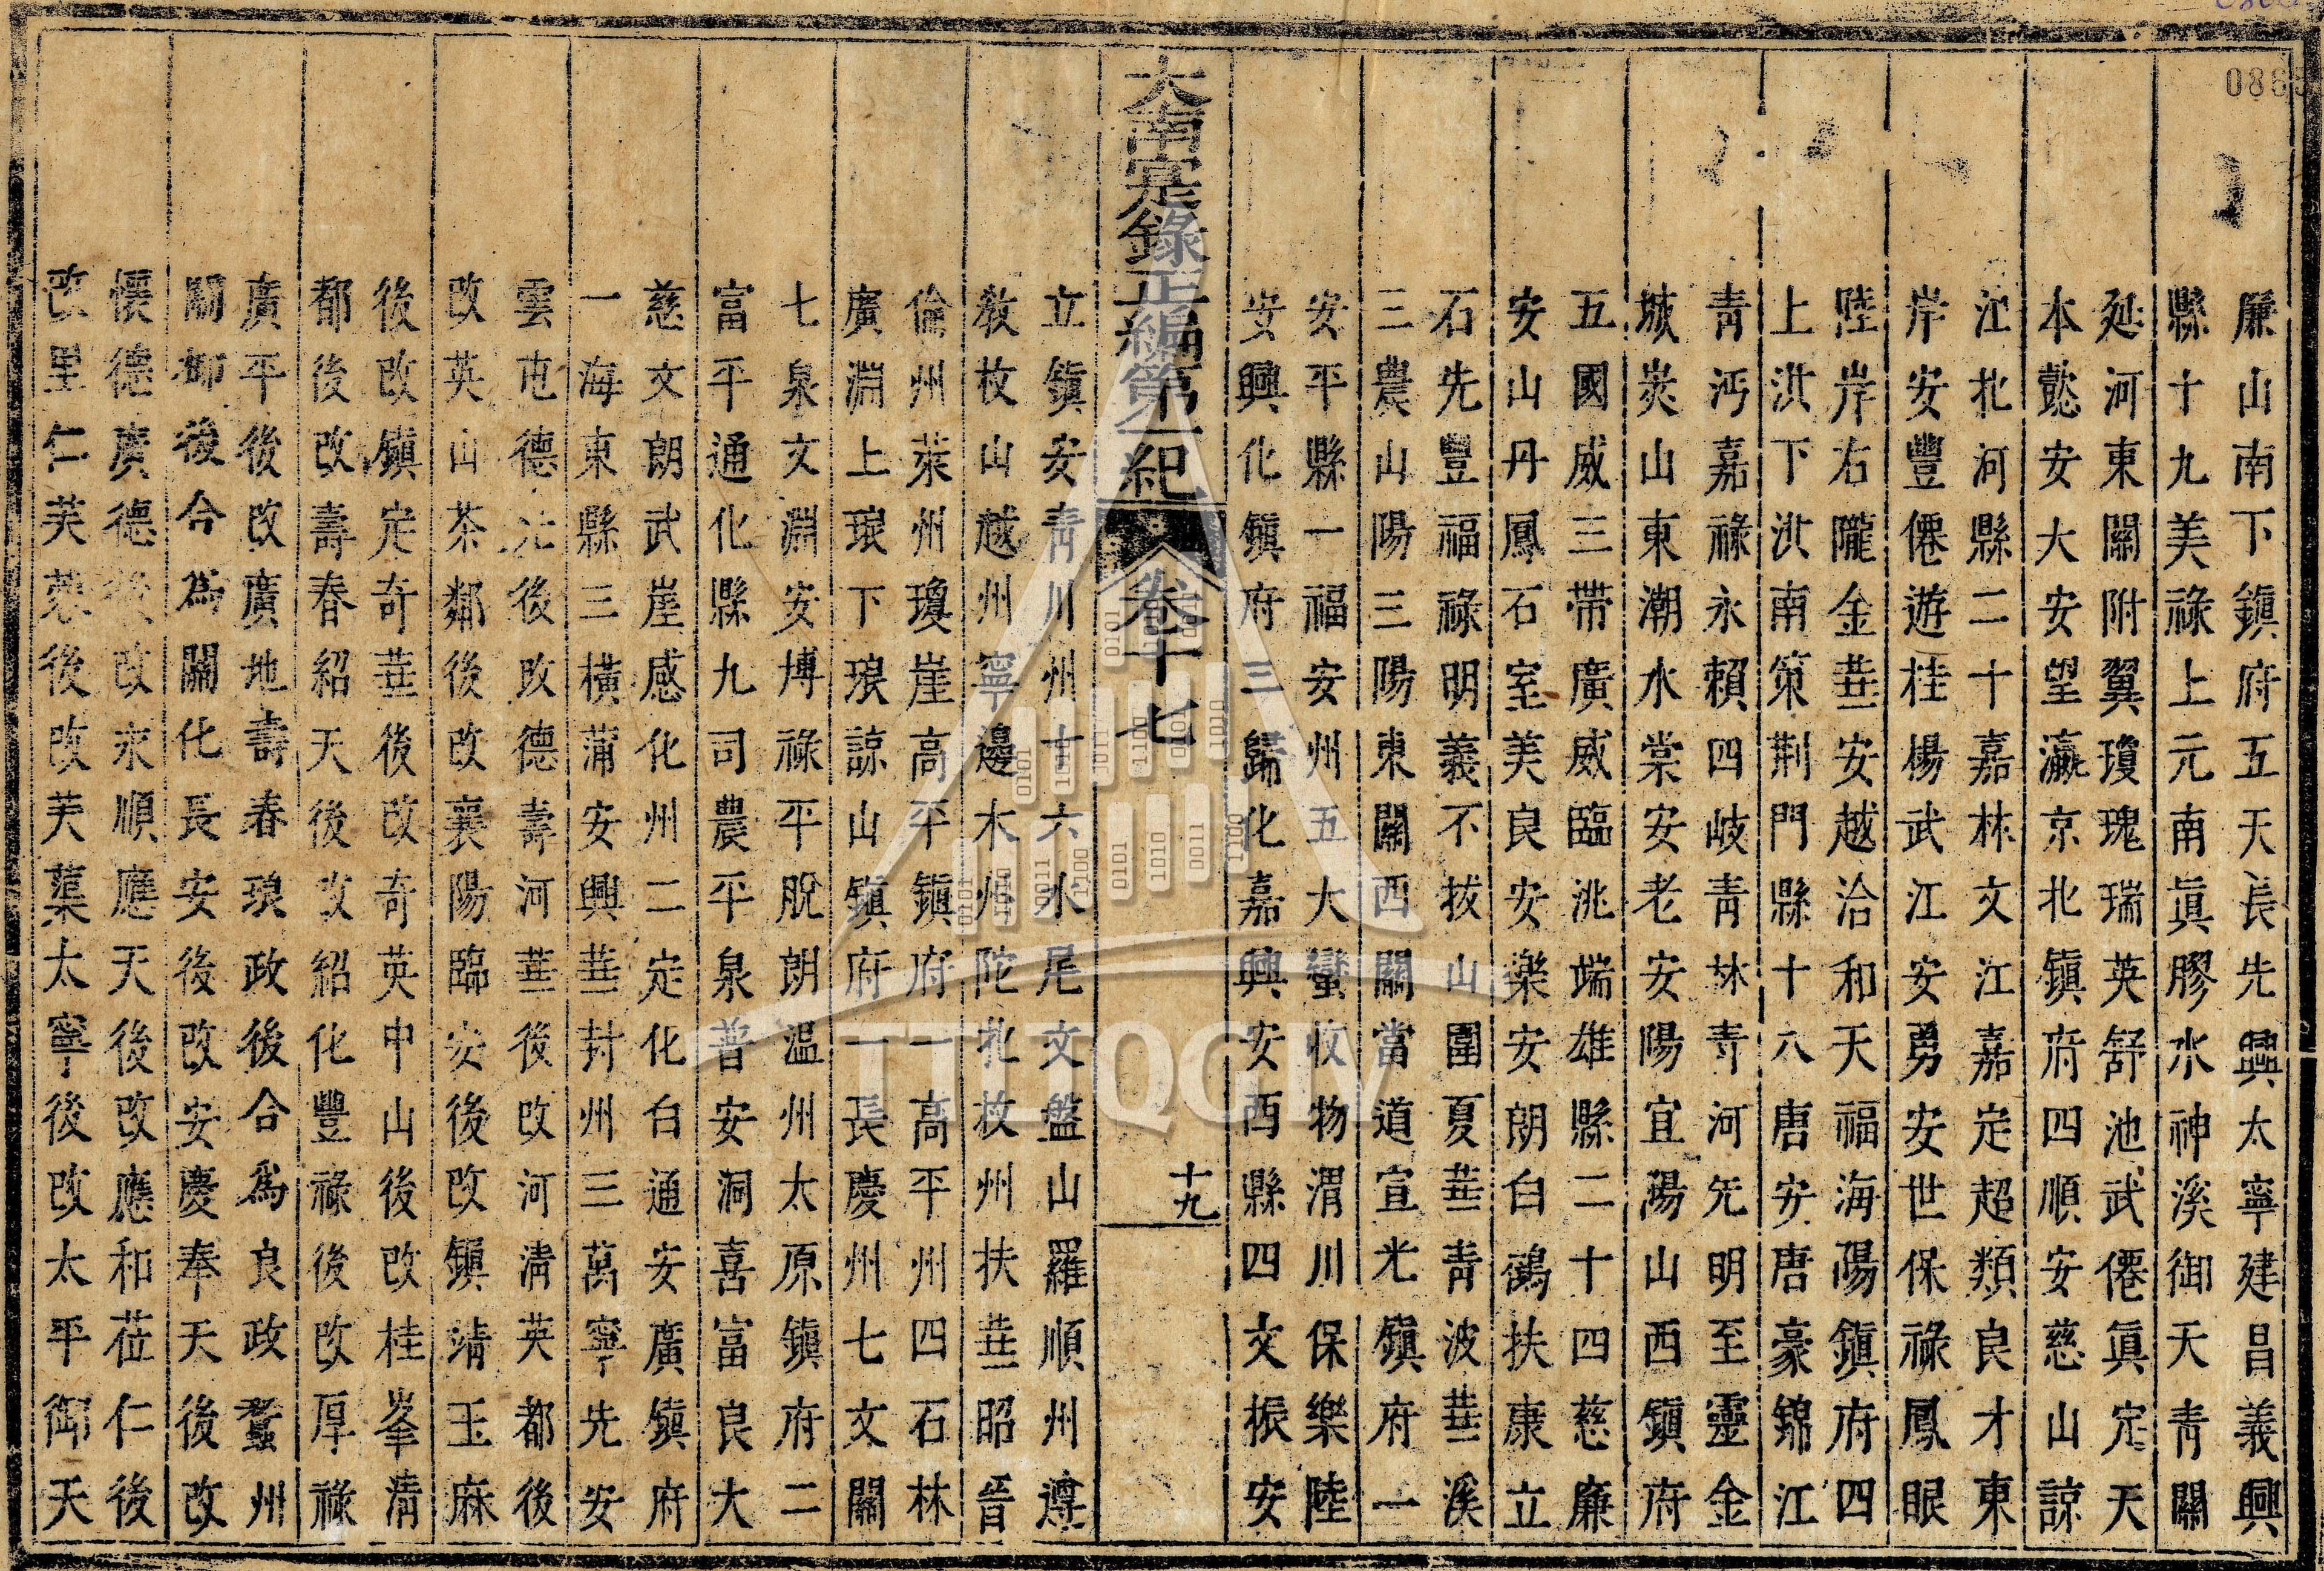 0863
廉山南下鎮府五天長先興太寧建昌義興
縣十九美祿上元南眞膠水神溪御天青關
延河東關附翼瓊瑰瑞英舒池武僊眞定天
本懿安大安望瀛京北鎮府四順安慈山諒
江北河縣二十嘉林文江嘉定超類良才東
岸安豐僊遊桂楊武江安勇安世保祿鳳眼
陸岸右隴金華安越洽和天福海陽鎮府四
上洪下洪南策荆門縣十八唐安唐豪錦江
青沔嘉祿永賴四岐青林青河先明至靈金
城炭山東潮水棠安老安陽宜陽山西鎮府
五國威三帶廣威臨洮端雄縣二十四慈廉
安山丹鳳石室美良安樂安朗白鶴扶康立
石先豐福祿明義不拔山圍夏華青波華溪
三農山陽三陽東關西關當道宣光鎮府一
安平縣一福安州五大蠻收物渭川保樂陸
安興化鎮府三歸化嘉興安西縣四文振安
大南寔錄正編第一紀 卷十七 十九
立鎮安青川州十六水尾文盤山羅順州遵
教枚山越州寧邊木州陀北枚州扶華昭晉
倫州萊州瓊崖高平鎮府一高平州四石林
廣淵上琅下琅諒山鎮府一長慶州七文關
七泉文淵安博祿平脫朗温州太原鎮府二
富平通化縣九司農平泉普安洞喜富良大
慈文朗武崖感化州二定化白通安廣鎮府
一海東縣三橫蒲安興華封州三萬寧先安
雲屯德光後改德壽河華後改河清英都後
改英山茶鄰後改襄陽臨安後改鎮靖玉麻
後改鎮定奇華後改奇英中山後改桂峯清
都後改壽春紹天後改紹化豐祿後改厚祿
廣平後改廣地壽春琅政後合為良政蠻州
關郍後合為關化長安後改安慶奉天後改
懷德廣德後改永順應天後改應和莅仁後
改里仁芙蒥後改芙蕖太寧後改太平御天